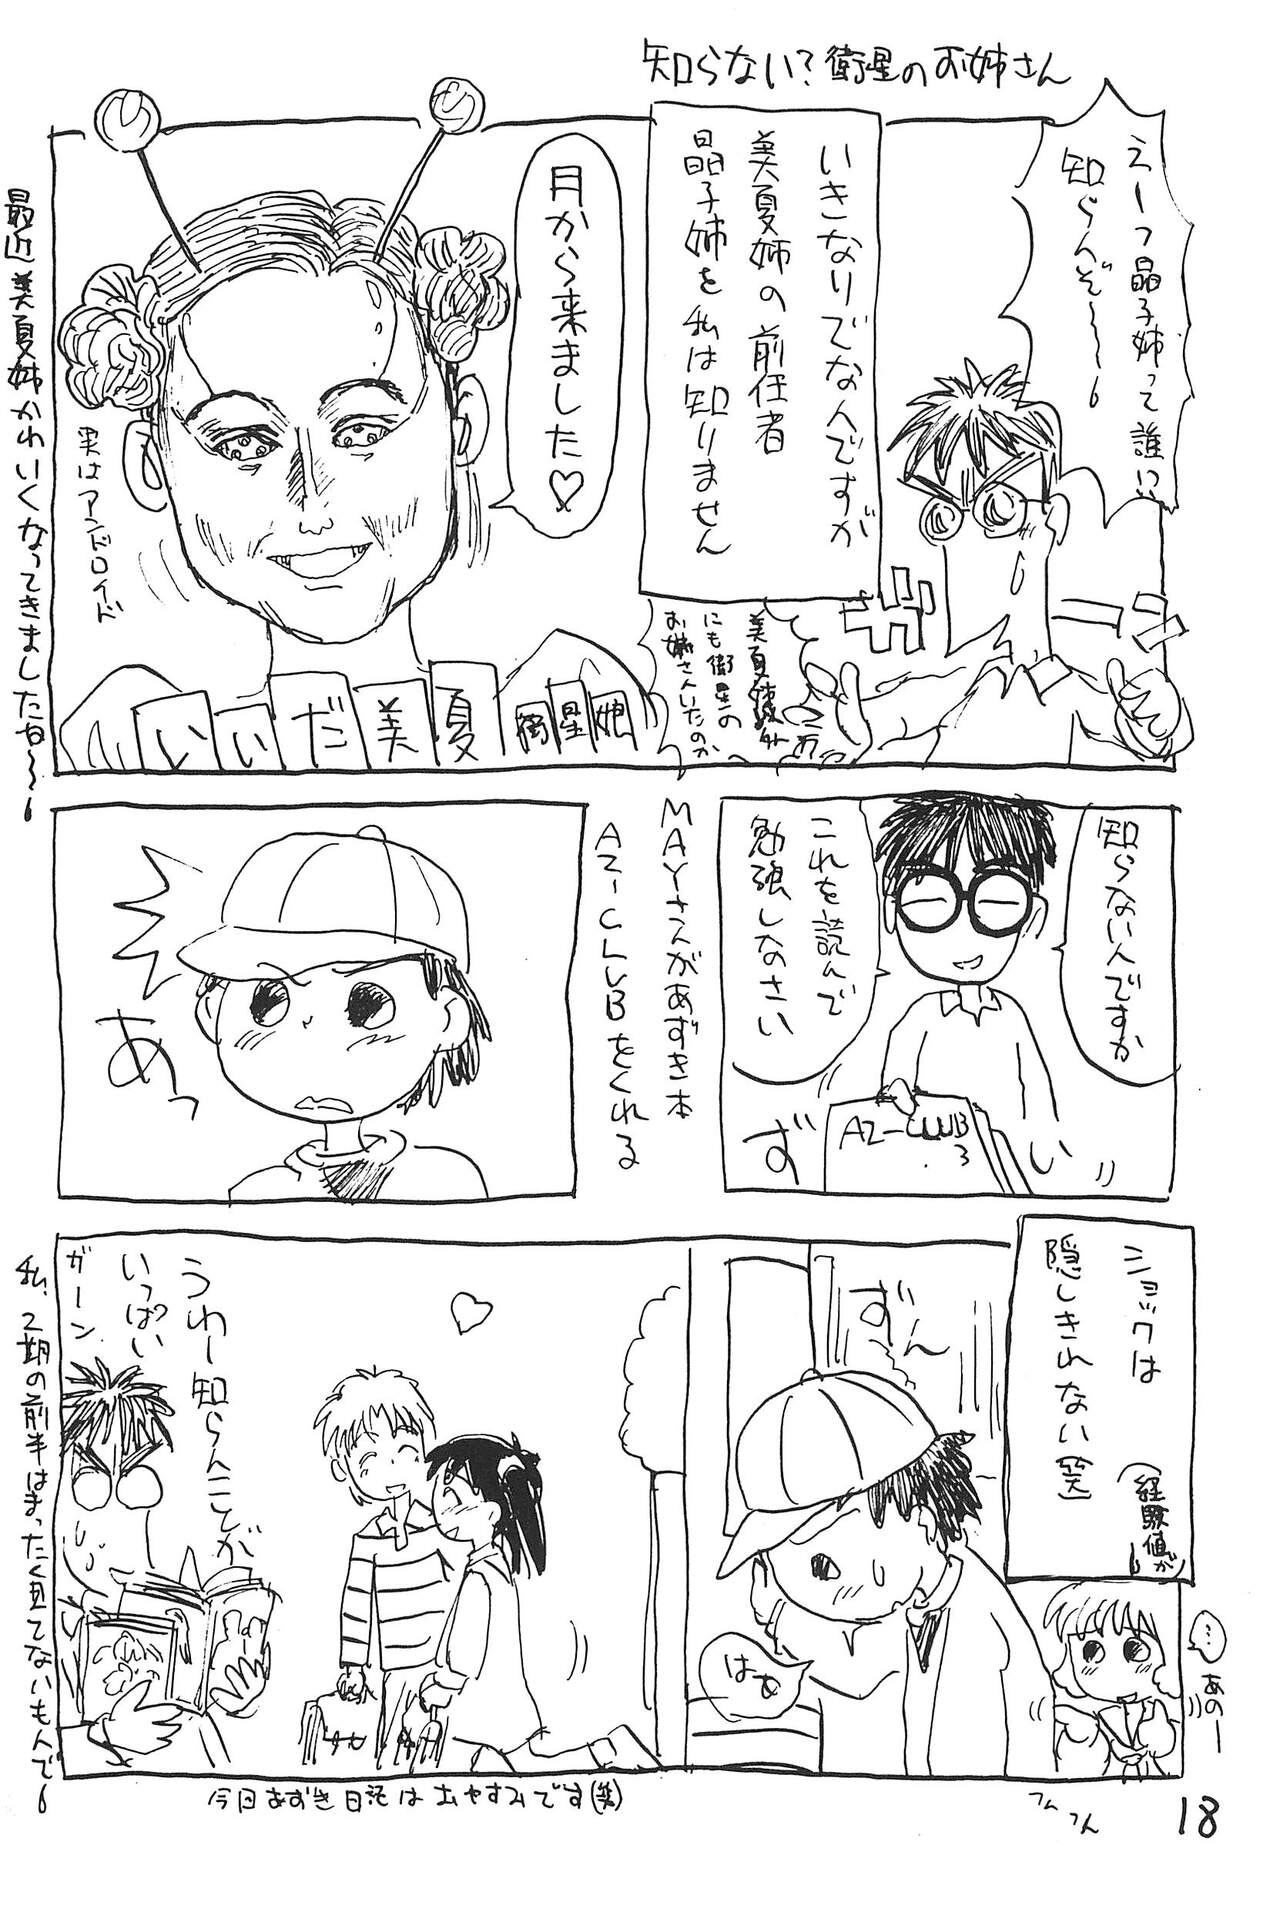 知らない？衛星のお姉さん
えーっ晶子姉って誰い
知らんぞ～～
いきなりでなんですが
美夏姉の前任者
晶子姉を私は知りません
ガーン
美夏姉以外
にも衛星の
お姉さんいたのか
月から来ました♡
実はアンドロイド
いいだ美夏
衛星娘
最近美夏姉かわいくなってきましたな～
知らないんですか
これを読んで
勉強しなさい
AZ-CLUB
3
ずい
MAYさんがあずき本
AZ-CLUBをくれる
あっ
ショックは
隠しきれない(笑)
(経験値が)
ずーん
はぁ
…
あのー
うわー知らんことが
いっぱい
ガーン
私、2期の前半はまったく見てないもんで
今日あずき日記はおやすみです(笑)
フムフム
18